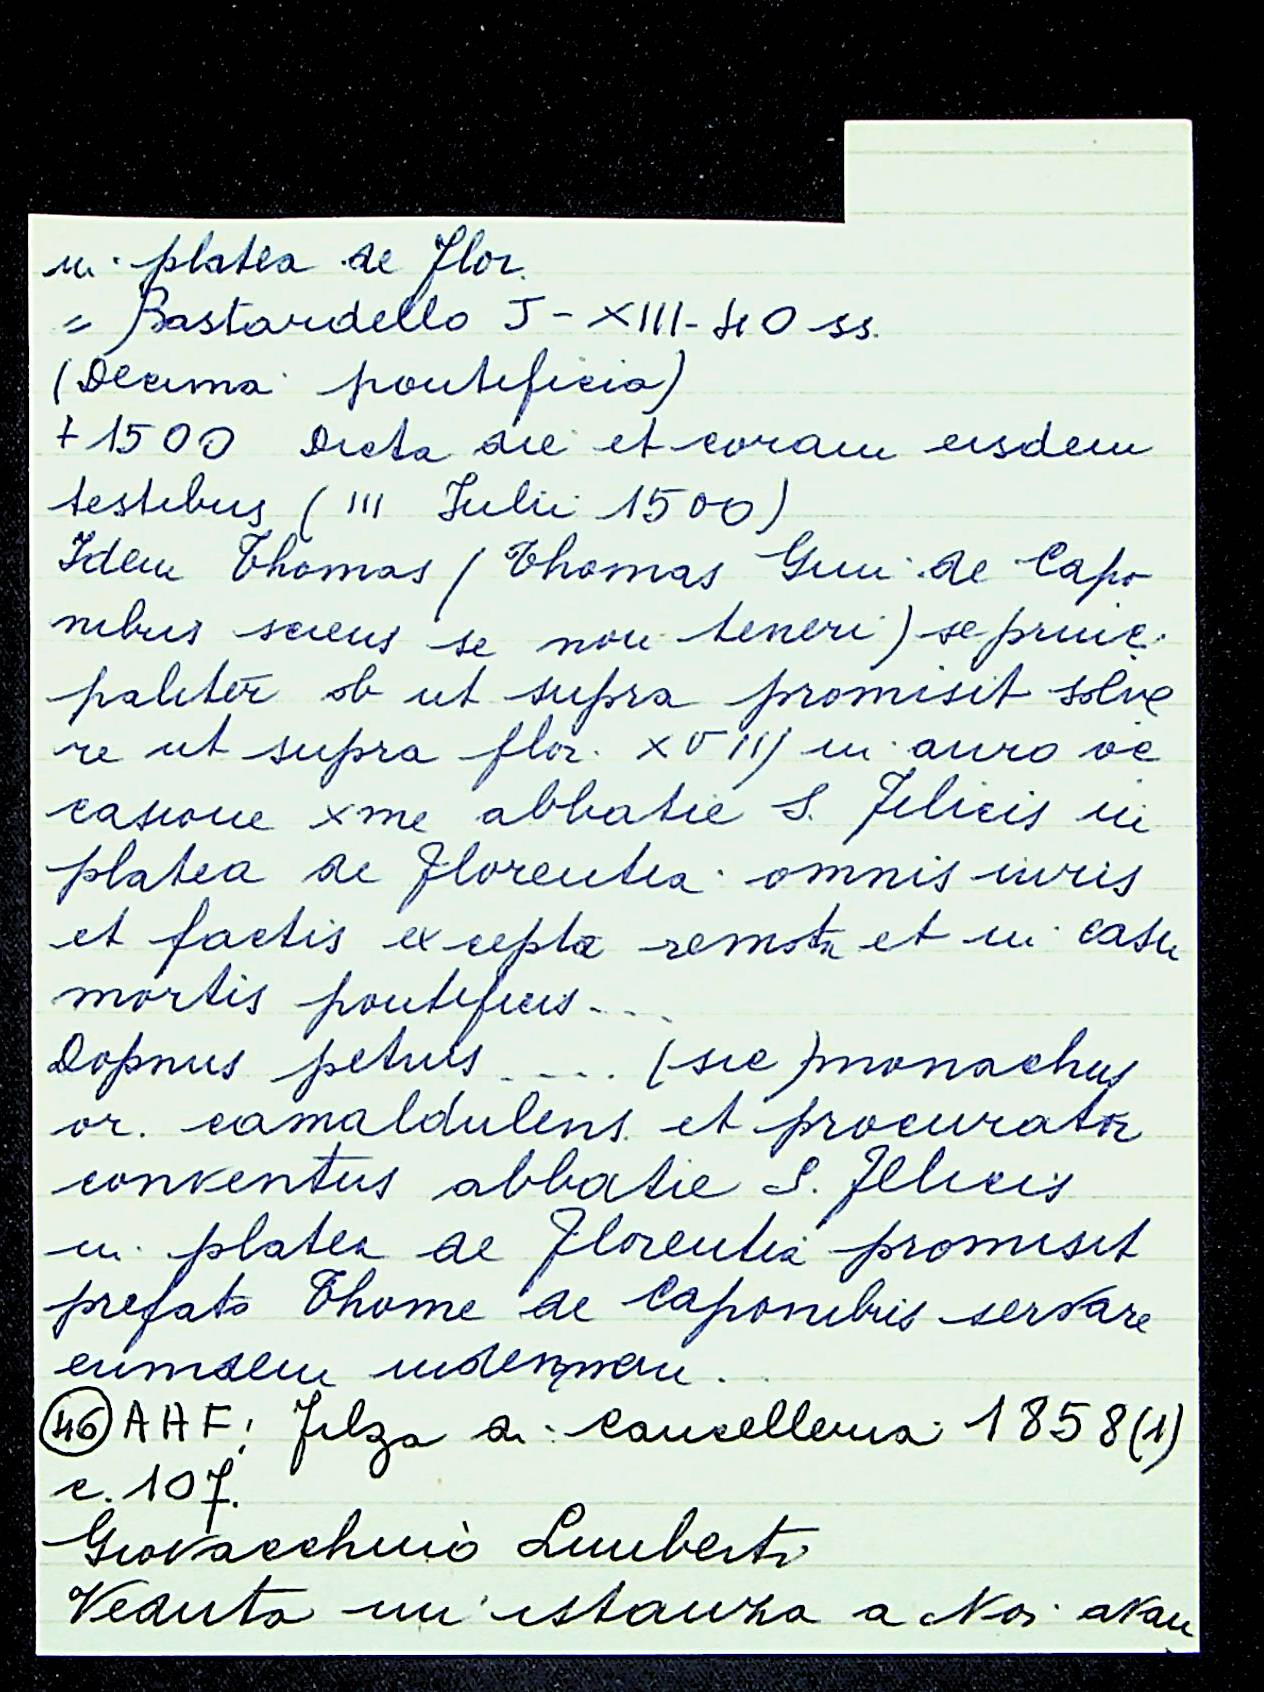 in platea de Flor.
= Bastardello J - XIII - 40 ss.
(Decima pontificia)
+ 1500 Dicta die et coram eisdem
testibus (III Iulii 1500)
Idem Thomas (Thomas Gini de Capo
nibus sciens se non teneri) se princi
paliter ob ut supra promisit solve
re ut supra flor. XVIIJ in auro oc
casione xme abbatie S. Felicis in
platea de Florentia omnis iuris
et factis excepta remota et in casu
mortis pontificis ....
Dopnus petrus ..... (sic) monachus
or. camaldulens. et procurator
conventus abbatie S. Felicis
in platea de Florentia promisit
prefato Thome de Caponibus servare
eumdem indennem. ..
(46) AHF: Filza di Cancelleria 1858(1)
c. 107.
Giovacchino Limberti
Veduta un'istanza a Noi avan